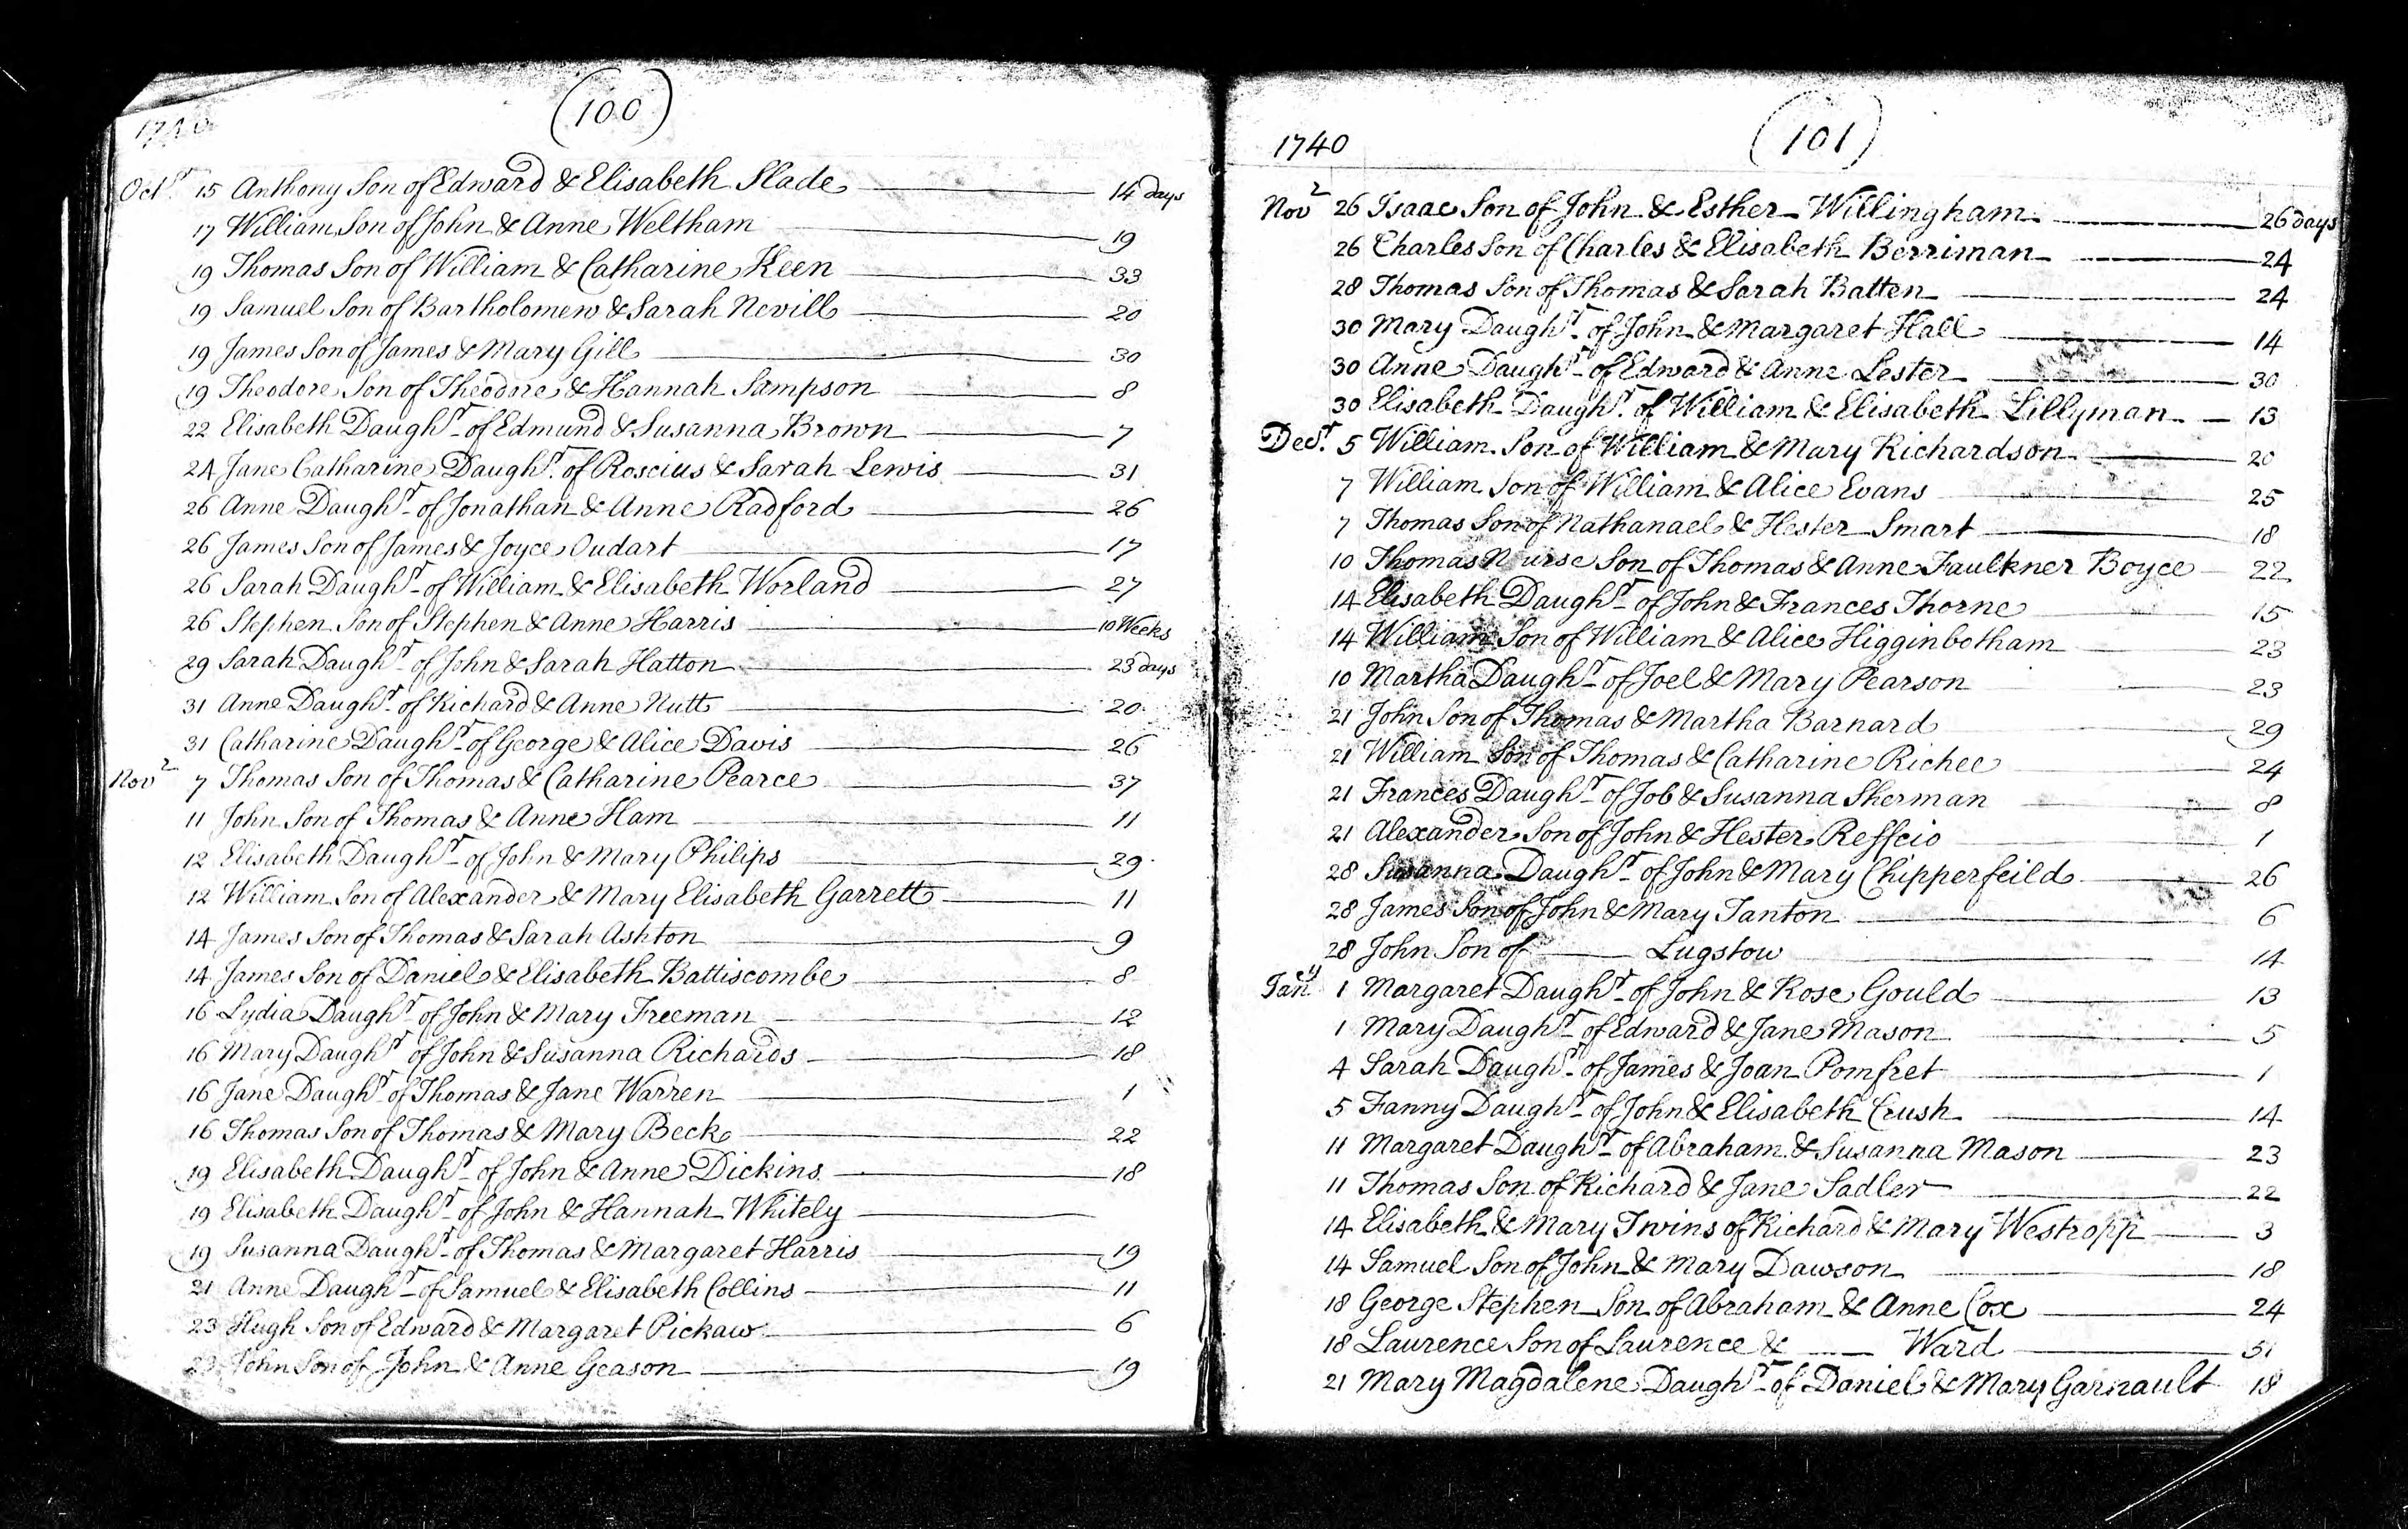 (100)
1740
Octr. 15 Anthony Son of Edward & Elisabeth Slade 14 days
17 William Son of John & Anne Weltham 19
19 Thomas Son of William & Catharine Keen 33
19 Samuel Son of Bartholomew & Sarah Nevill 20
19 James Son of James & Mary Gill 30
19 Theodore Son of Theodore & Hannah Sampson 8
22 Elisabeth Daughr. of Edmund & Susanna Brown 7
24 Jane Catharine Daughr. of Roscius & Sarah Lewis 31
26 Anne Daughr. of Jonathan & Anne Radford 26
26 James Son of James & Joyce Oudart 17
26 Sarah Daughr. of William & Elisabeth Worland 27
26 Stephen Son of Stephen & Anne Harris 10 Weeks
29 Sarah Daughr. of John & Sarah Hatton 23 days
31 Anne Daughr. of Richard & Anne Nutt 20
31 Catharine Daughr. of George & Alice Davis 26
Novr 7 Thomas Son of Thomas & Catharine Pearce 37
11 John Son of Thomas & Anne Ham 11
12 Elisabeth Daughr. of John & Mary Philips 29
12 William Son of Alexander & Mary Elisabeth Garrett 11
14 James Son of Thomas & Sarah Ashton 9
14 James Son of Daniel & Elisabeth Battiscombe 8
16 Lydia Daughr. of John & Mary Freeman 12
16 Mary Daughr. of John & Susanna Richards 18
16 Jane Daughr. of Thomas & Jane Warren 1
16 Thomas Son of Thomas & Mary Beck 22
19 Elisabeth Daughr. of John & Anne Dickins 18
19 Elisabeth Daughr. of John & Hannah Whitely
19 Susanna Daughr. of Thomas & Margaret Harris 19
21 Anne Daughr. of Samuel & Elisabeth Collins 11
23 Hugh Son of Edward & Margaret Pickaw 6
23 John Son of John & Anne Geason 19
(101)
1740
Novr 26 Isaac Son of John & Esther Willingham 26 days
26 Charles Son of Charles & Elisabeth Berriman 24
28 Thomas Son of Thomas & Sarah Batten 24
30 Mary Daughr. of John & Margaret Hall 14
30 Anne Daughr. of Edward & Anne Lester 30
30 Elisabeth Daughr. of William & Elisabeth Lillyman 13
Decr. 5 William Son of William & Mary Richardson 20
7 William Son of William & Alice Evans 25
7 Thomas Son of Nathanael & Hester Smart 18
10 Thomas Nurse Son of Thomas & Anne Faulkner Boyce 22
14 Elisabeth Daughr. of John & Frances Thorne 15
14 William Son of William & Alice Higginbotham 23
10 Martha Daughr. of Joel & Mary Pearson 23
21 John Son of Thomas & Martha Barnard 29
21 William Son of Thomas & Catharine Richee 24
21 Frances Daughr. of Job & Susanna Sherman 8
21 Alexander Son of John & Hester Reffcio 1
28 Susanna Daughr. of John & Mary Chipperfeild 26
28 James Son of John & Mary Tanton 6
28 John Son of —— Lugstow 14
Jany 1 Margaret Daughr. of John & Rose Gould 13
1 Mary Daughr. of Edward & Jane Mason 5
4 Sarah Daughr. of James & Joan Pomfret 1
5 Fanny Daughr. of John & Elisabeth Crush 14
11 Margaret Daughr. of Abraham & Susanna Mason 23
11 Thomas Son of Richard & Jane Sadler 22
14 Elisabeth & Mary Twins of Richard & Mary Westropp 3
14 Samuel Son of John & Mary Dawson 18
18 George Stephen Son of Abraham & Anne Cox 24
18 Laurence Son of Laurence & —— Ward 31
21 Mary Magdalene Daughr. of Daniel & Mary Garnault 18